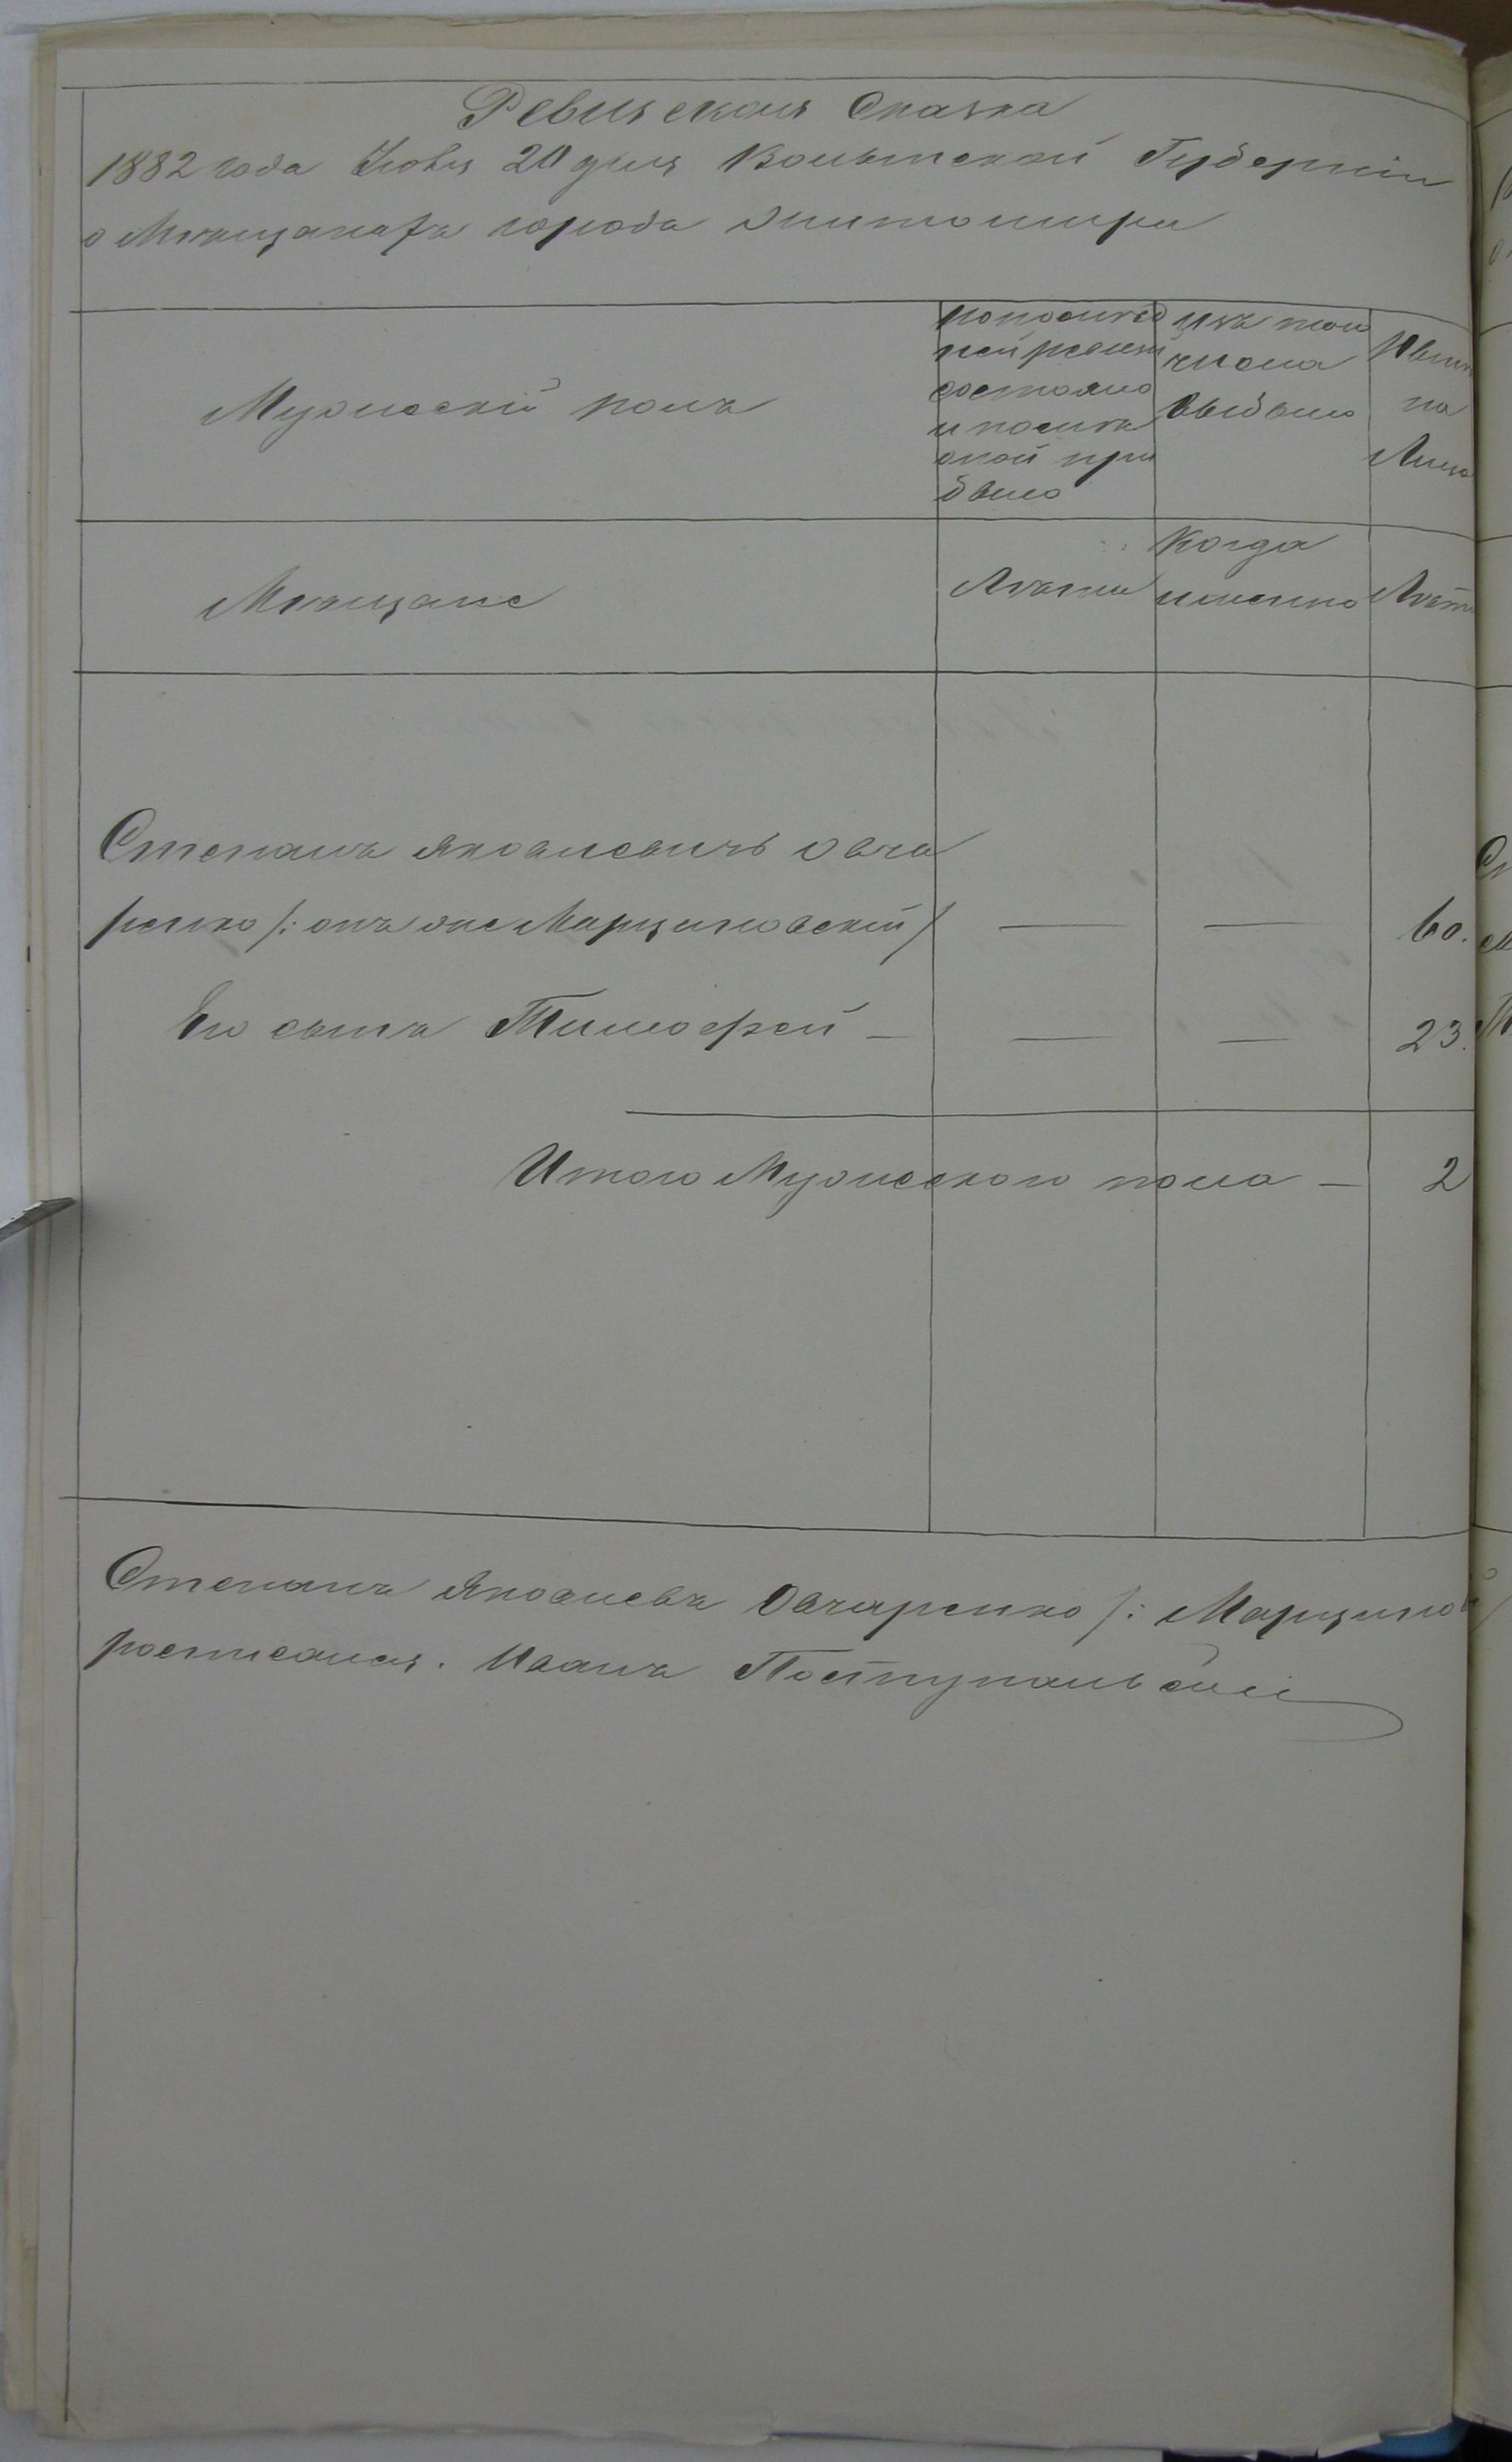 Ревизская Сказка
1882 года Июня 20 дня Волынской Губерніи
о Мѣщанахъ города Житомира
Мужескій полъ
по послѣд
ней ревизіи
состояло
и послѣ
оной при
было
Изъ того
числа
выбыло
Нынѣ
на
Лицо
Мѣщане
Лѣта
Когда
именно
Лѣта
Степанъ Яковлевичъ Овча
ренко /: онъ же Марциновскій /
— — 60.
Его сынъ Тимофей — — — 23.
Итого Мужескаго пола — 2
Степанъ Яковлевъ Овчаренко /: Марцинов
росписался. Иванъ